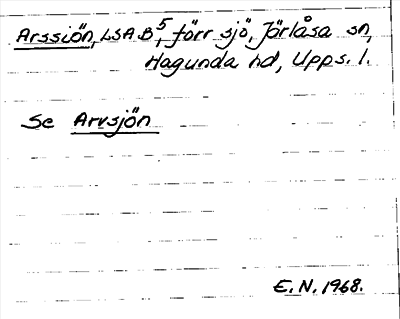 Arssiön, LSA B⁵, förr sjö, Järlåsa sn,
Hagunda hd, Upps. l.
Se Arvsjön
E.N. 1968.